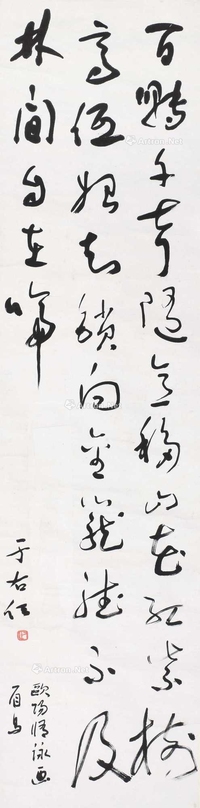 百鸟千声随意移山花红紫树
高低始知锁向金笼听不及
林间自在啼
于右任
欧阳修咏画
眉鸟